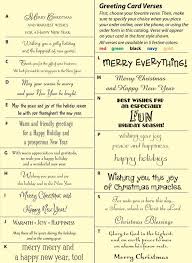 Greeting Card Verses
First, choose your favorite verse. Then, make
sure to specify your choice when you place
your order online, over the phone, or using
the order form contained in this catalog.
All verses are available in 5 festive colors:
red green black navy gold
A
Merry Christmas
and Warmest Wishes
for a Happy New Year.
B
Wishing you a joyful
Christmas and a peaceful
New Year.
D
May your season be merry
and your new year be bright.
E
May the peace and joy of the holiday season
be with you throughout the coming year.
F
Warm and friendly greetings
for a Happy Holiday
and a prosperous New Year.
Wishing you
Happy Holidays
and a wonderful
New Year.
Merry Christmas
and
Happy New Year!
Warmth • Joy • Happiness
May these be yours at Christmas
and throughout the New Year.
K
merry merry merry
and a happy, happy
new year, too!
MERRY EVERYTHING!
M
Merry Christmas
and Happy New Year
N
BEST WISHES FOR
AN ESPECIALLY
FUN
HOLIDAY SEASON!
wishing you
peace
and
happiness
happy holidays
Wishing you the joy
of Christmas miracles.
Merry Christmas
Christmas Blessings
T
Glory to God in the highest
and on earth
peace, goodwill
toward men.